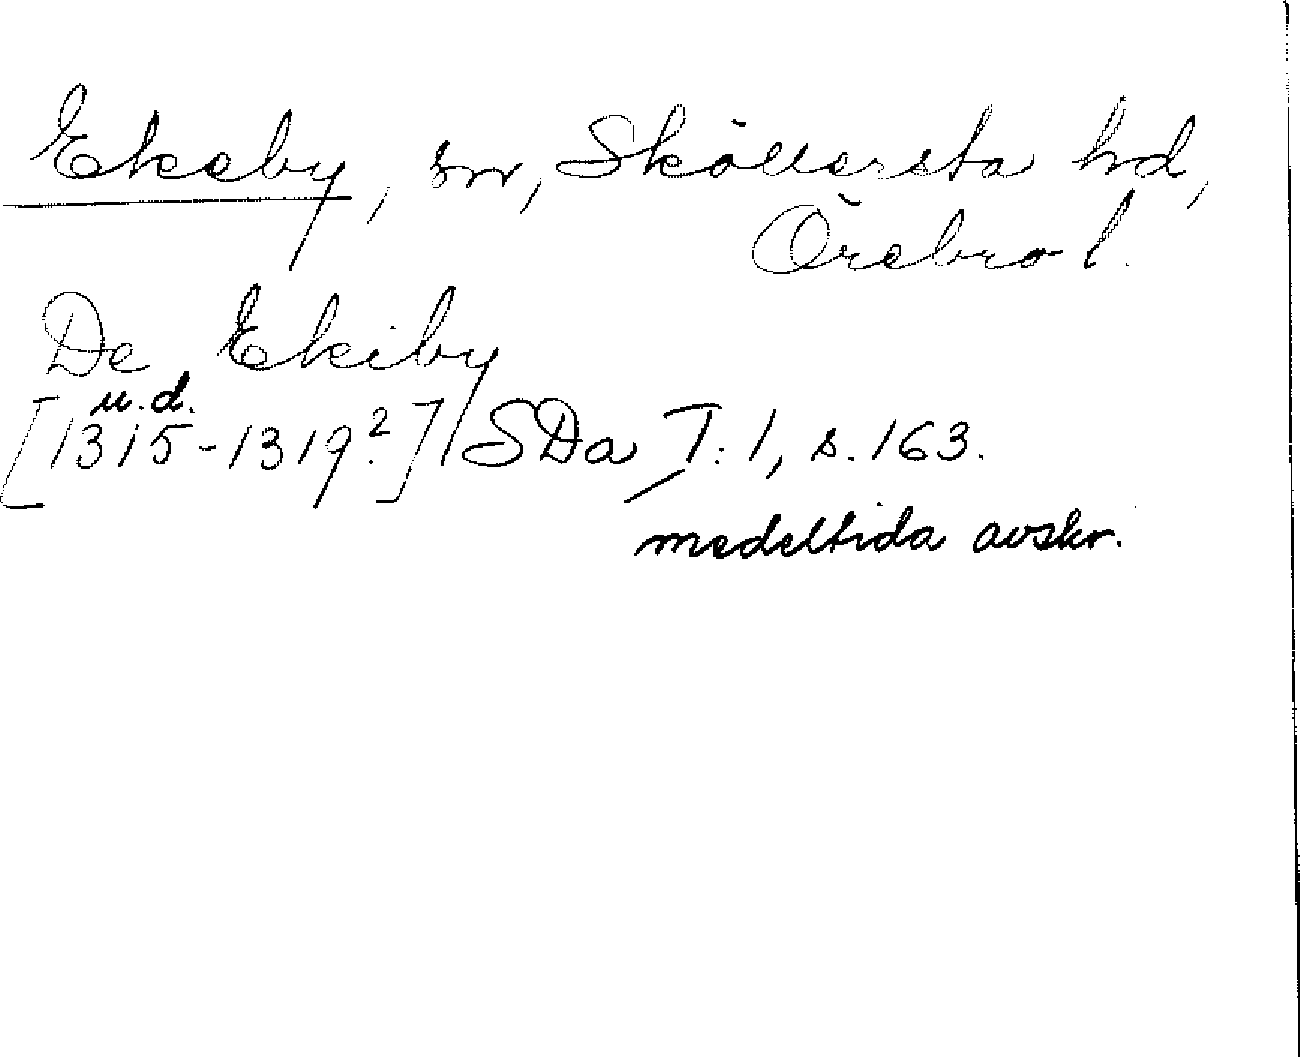 Ekeby, sn, Sköllersta hd,
Örebro l.
De Ekiby
u.d.
[1315-1319?] SDa T: 1, s. 163.
medeltida avskr.